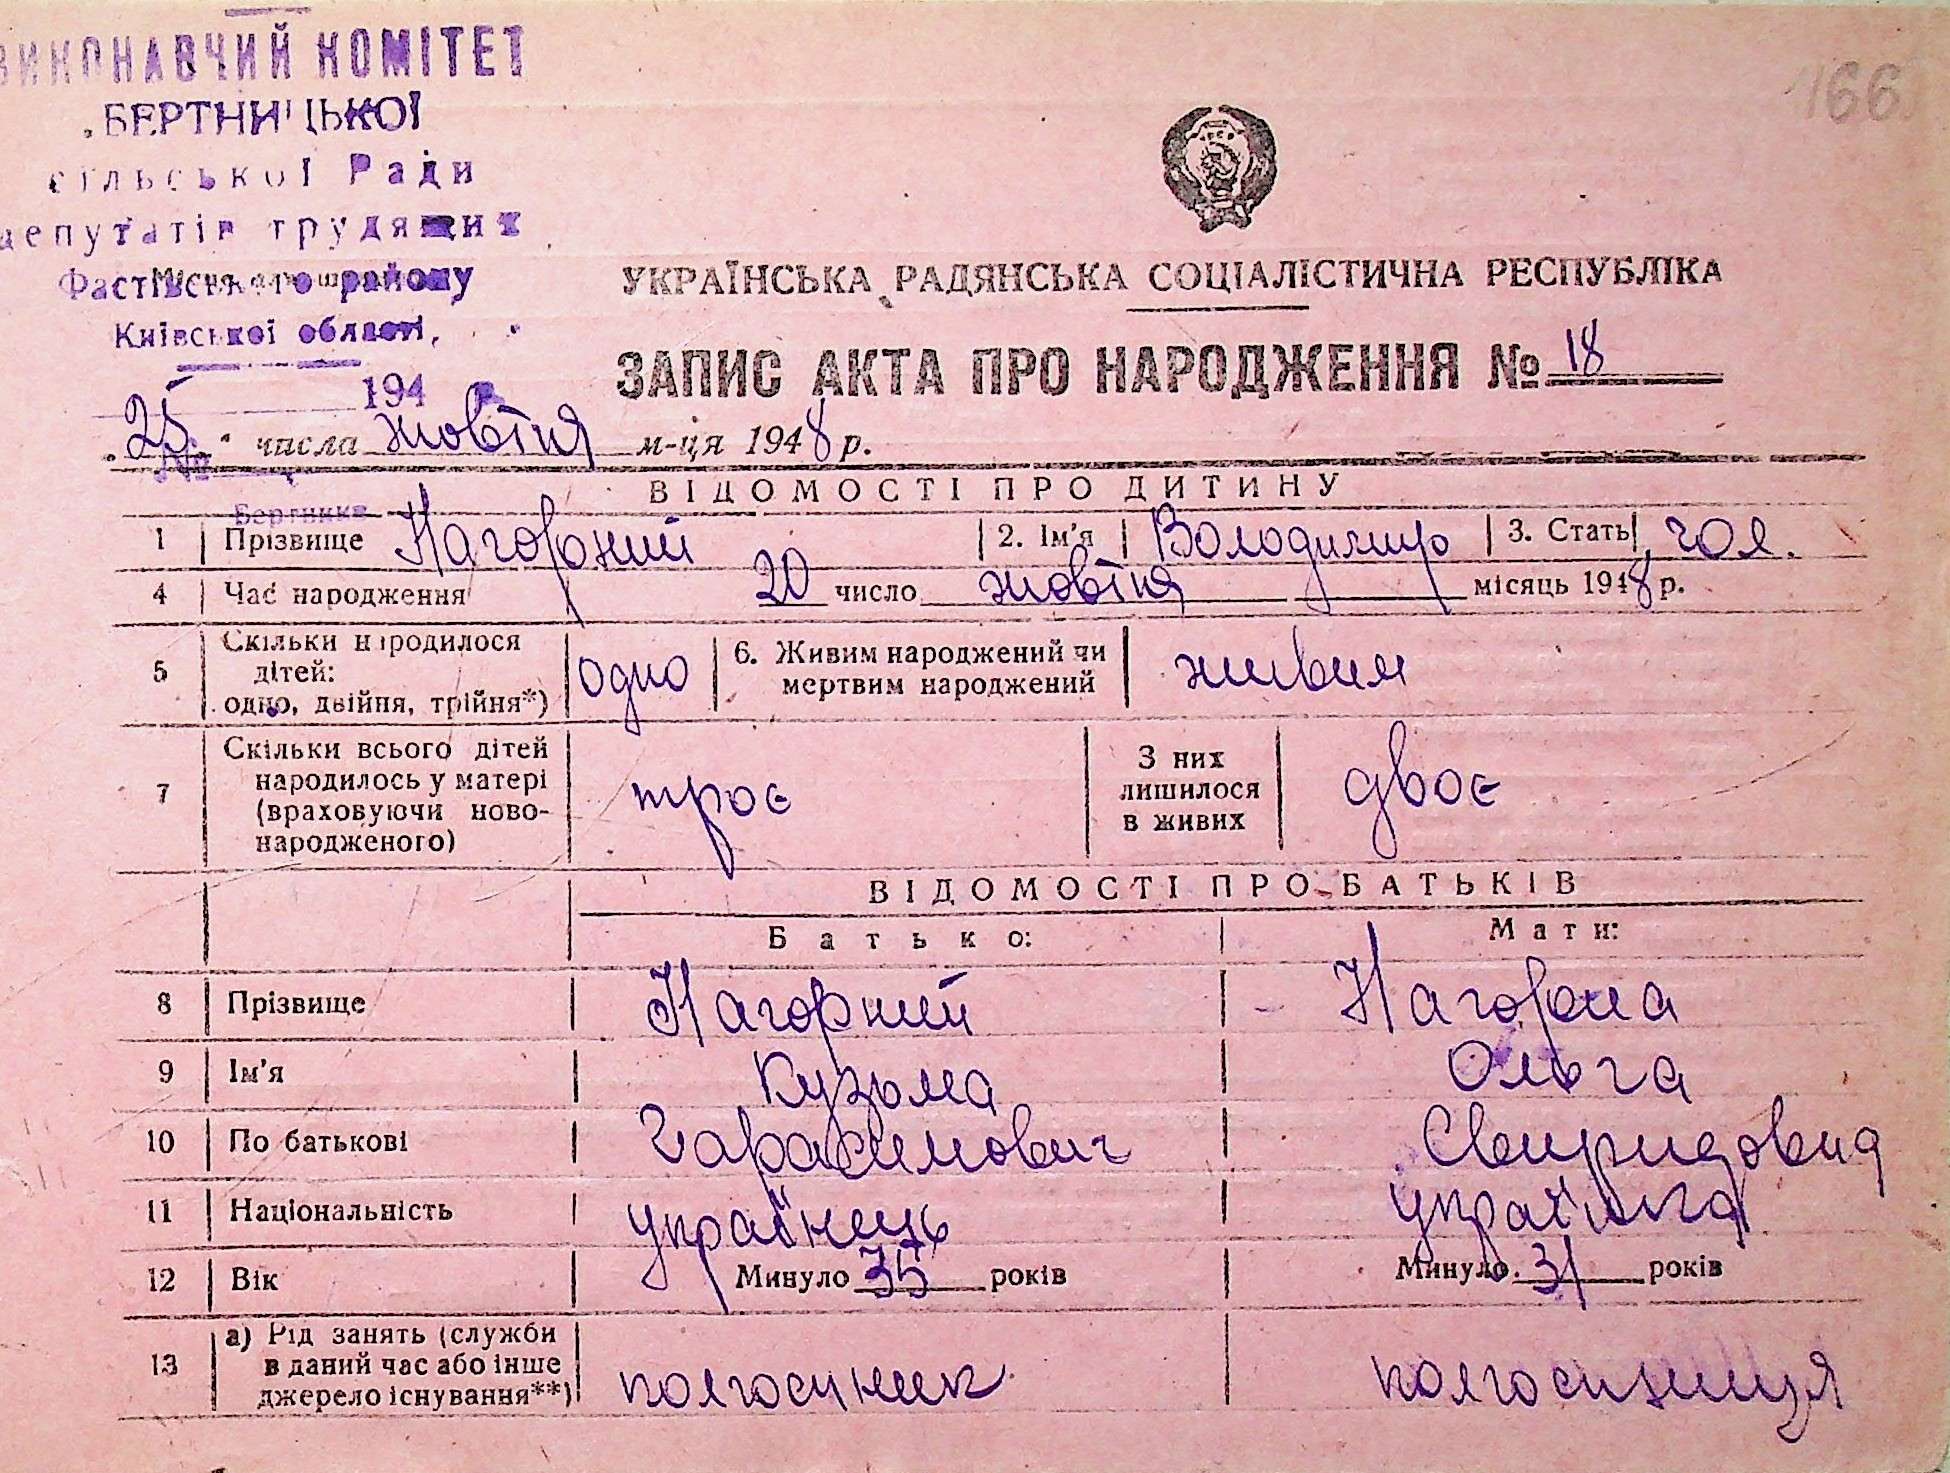 ВИКОНАВЧИЙ КОМІТЕТ
БЕРТНИЦЬКОЇ
сільської Ради
депутатів трудящих
Фастівського району
Київської області,
194
166
УКРАЇНСЬКА РАДЯНСЬКА СОЦІАЛІСТИЧНА РЕСПУБЛІКА
ЗАПИС АКТА ПРО НАРОДЖЕННЯ № 18
"25" числа жовтня м-ця 1948 р.
№
ВІДОМОСТІ ПРО ДИТИНУ
Бертники
1 Прізвище Нагорний 2. Ім'я Володимир 3. Стать чол.
4 Час народження 20 число жовтня місяць 1948 р.
5 Скільки народилося
дітей:
одно, двійня, трійня*) одно 6. Живим народжений чи
мертвим народжений живим
7 Скільки всього дітей
народилось у матері
(враховуючи ново-
народженого) троє З них
лишилося
в живих двоє
ВІДОМОСТІ ПРО БАТЬКІВ
Батько: Мати:
8 Прізвище Нагорний Нагорна
9 Ім'я Кузьма Ольга
10 По батькові Гарасимович Свиридовна
11 Національність українець українка
12 Вік Минуло 35 років Минуло 31 років
13 а) Рід занять (служби
в даний час або інше
джерело існування**) колгоспник колгоспниця